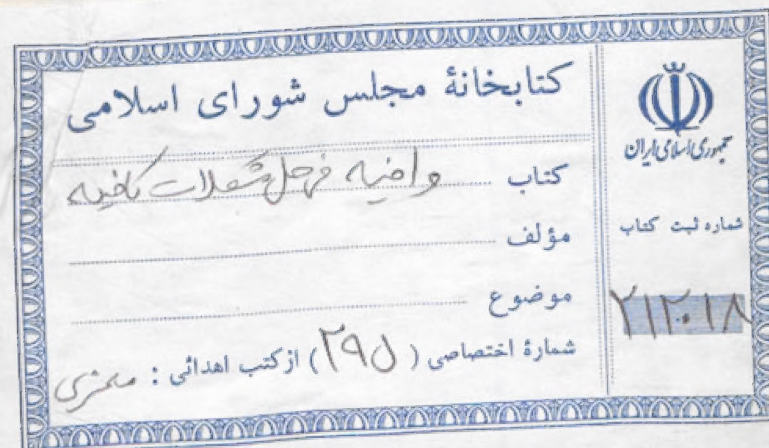 کتابخانهٔ مجلس شورای اسلامی
کتاب وافیه فی حل مشکلات کافیه
مؤلف
موضوع
شمارهٔ اختصاصی ( ۲۹۵ ) از کتب اهدائی :
جمهوری اسلامی ایران
شماره ثبت کتاب
۲۱۲۰۱۸